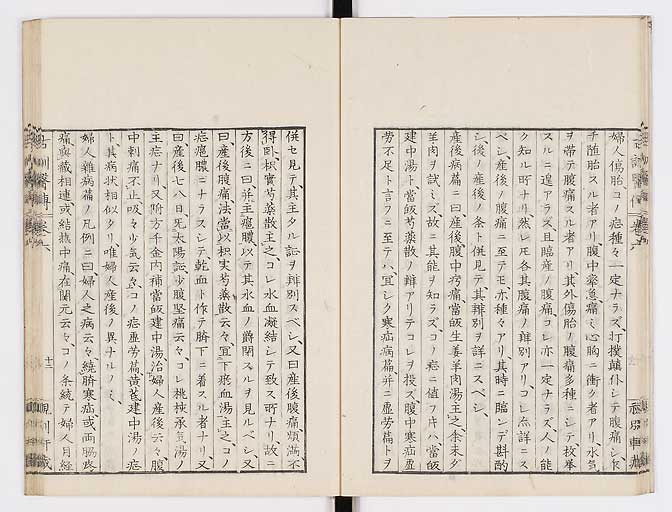 婦人傷胎コノ症種々一定ナラズ打撲顚仆シテ腹痛シ或
手随胎スル者アリ腹中攣急痛ミ心胸ニ衝ク者アリ水気
ヲ帯テ腹痛スル者アリ其外傷胎ノ腹痛多種ニシテ枚挙
スルニ遑アラズ且臨産ノ腹痛コレ亦一定ナラズ人ノ能
ク知ル所ナリ然レ𪜈各其腹痛ノ辨別アリコレ亦詳ニス
ベシ産後ノ腹痛ニ至テモ亦種々アリ其時ニ臨ンデ斟酌
シ後ノ産後ノ条ト併見テ其辨別ヲ詳ニスベシ
産後病篇ニ曰産後腹中㽲痛當皈生姜羊肉湯主之余未ダ
羊肉ヲ試ミズ故ニ其能ヲ知ラズコノ症ニ値フ𪜈ハ當皈
建中湯ト當皈芍薬散ノ辨アリテコレヲ投ズ腹中寒疝虚
労不足ト言フニ至テハ宜シク寒疝病篇并ニ虚労篇トヲ
併セ見テ其主タル証ヲ辨別スベシ又曰産後腹痛煩満不
得卧枳實芍薬散主之コレ水血凝結シテ致ス所ナリ故ニ
方後ニ曰并主癰膿以テ其水血ノ欝閉スルヲ見ルベシ又
曰産後腹痛法當以枳実芍薬散云々宜下瘀血湯主之コノ
症癰膿ニナラズシテ乾血ト作テ臍下ニ着スル者ナリ又
曰産後七八日死太陽証少腹堅痛云々コレ桃核承気湯ノ
主症ナリ又附方千金内補當皈建中湯治婦人産後云々腹
中刺痛不止吸々少気云々コノ症虚労篇黄耆建中湯ノ症
ト其病状相似タリ唯婦人産後ノ異ナルノミ
婦人雜病篇ノ凡例ニ曰婦人之病云々繞臍寒疝或両脇疼
痛與蔵相連或結熱中痛在関元云々コノ条統テ婦人月経
十三